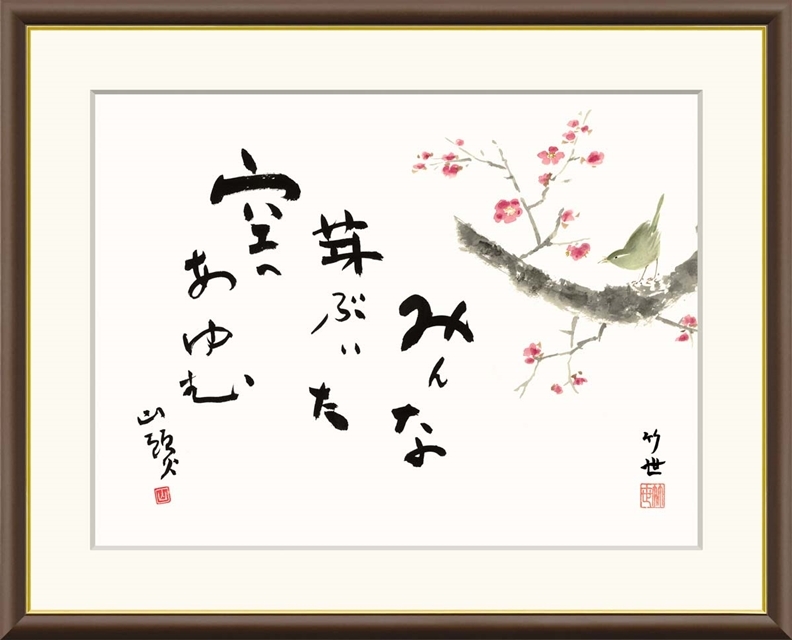 みんな
芽ぶいた
空へ
あゆむ
山頭火
竹世